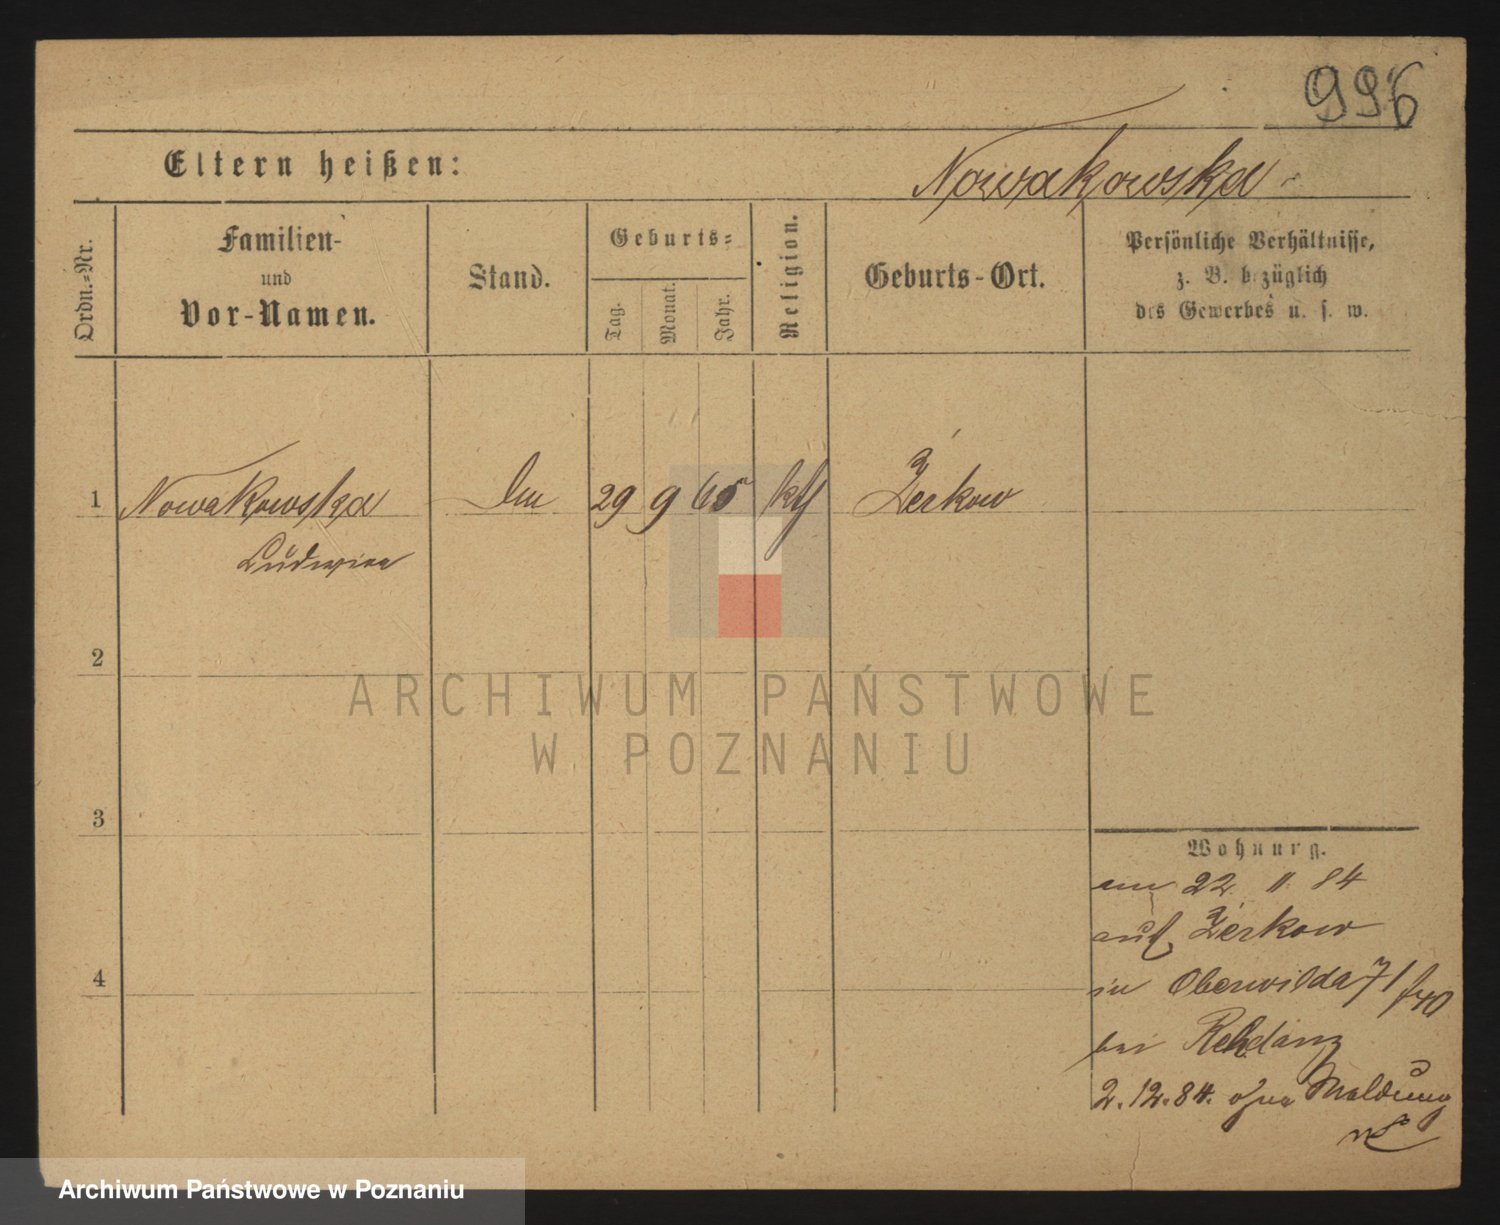 996
Eltern heißen:
Nowakowska
Ordn.-Nr.
Familien-
und
Vor-Namen.
Stand.
Geburts-
Tag.
Monat.
Jahr.
Religion.
Geburts-Ort.
Persönliche Verhältnisse,
z. B. bezüglich
des Gewerbes u. s. w.
1 Nowakowska 29 9 65 kth Żerkow
Ludwika
2
3
4
Wohnung.
am 22. 11. 84
auf Żerkow
in Oberwilda 71
bei Rehdanz
2. 12. 84. ohne Meldung
ARCHIWUM PAŃSTWOWE
W POZNANIU
Archiwum Państwowe w Poznaniu